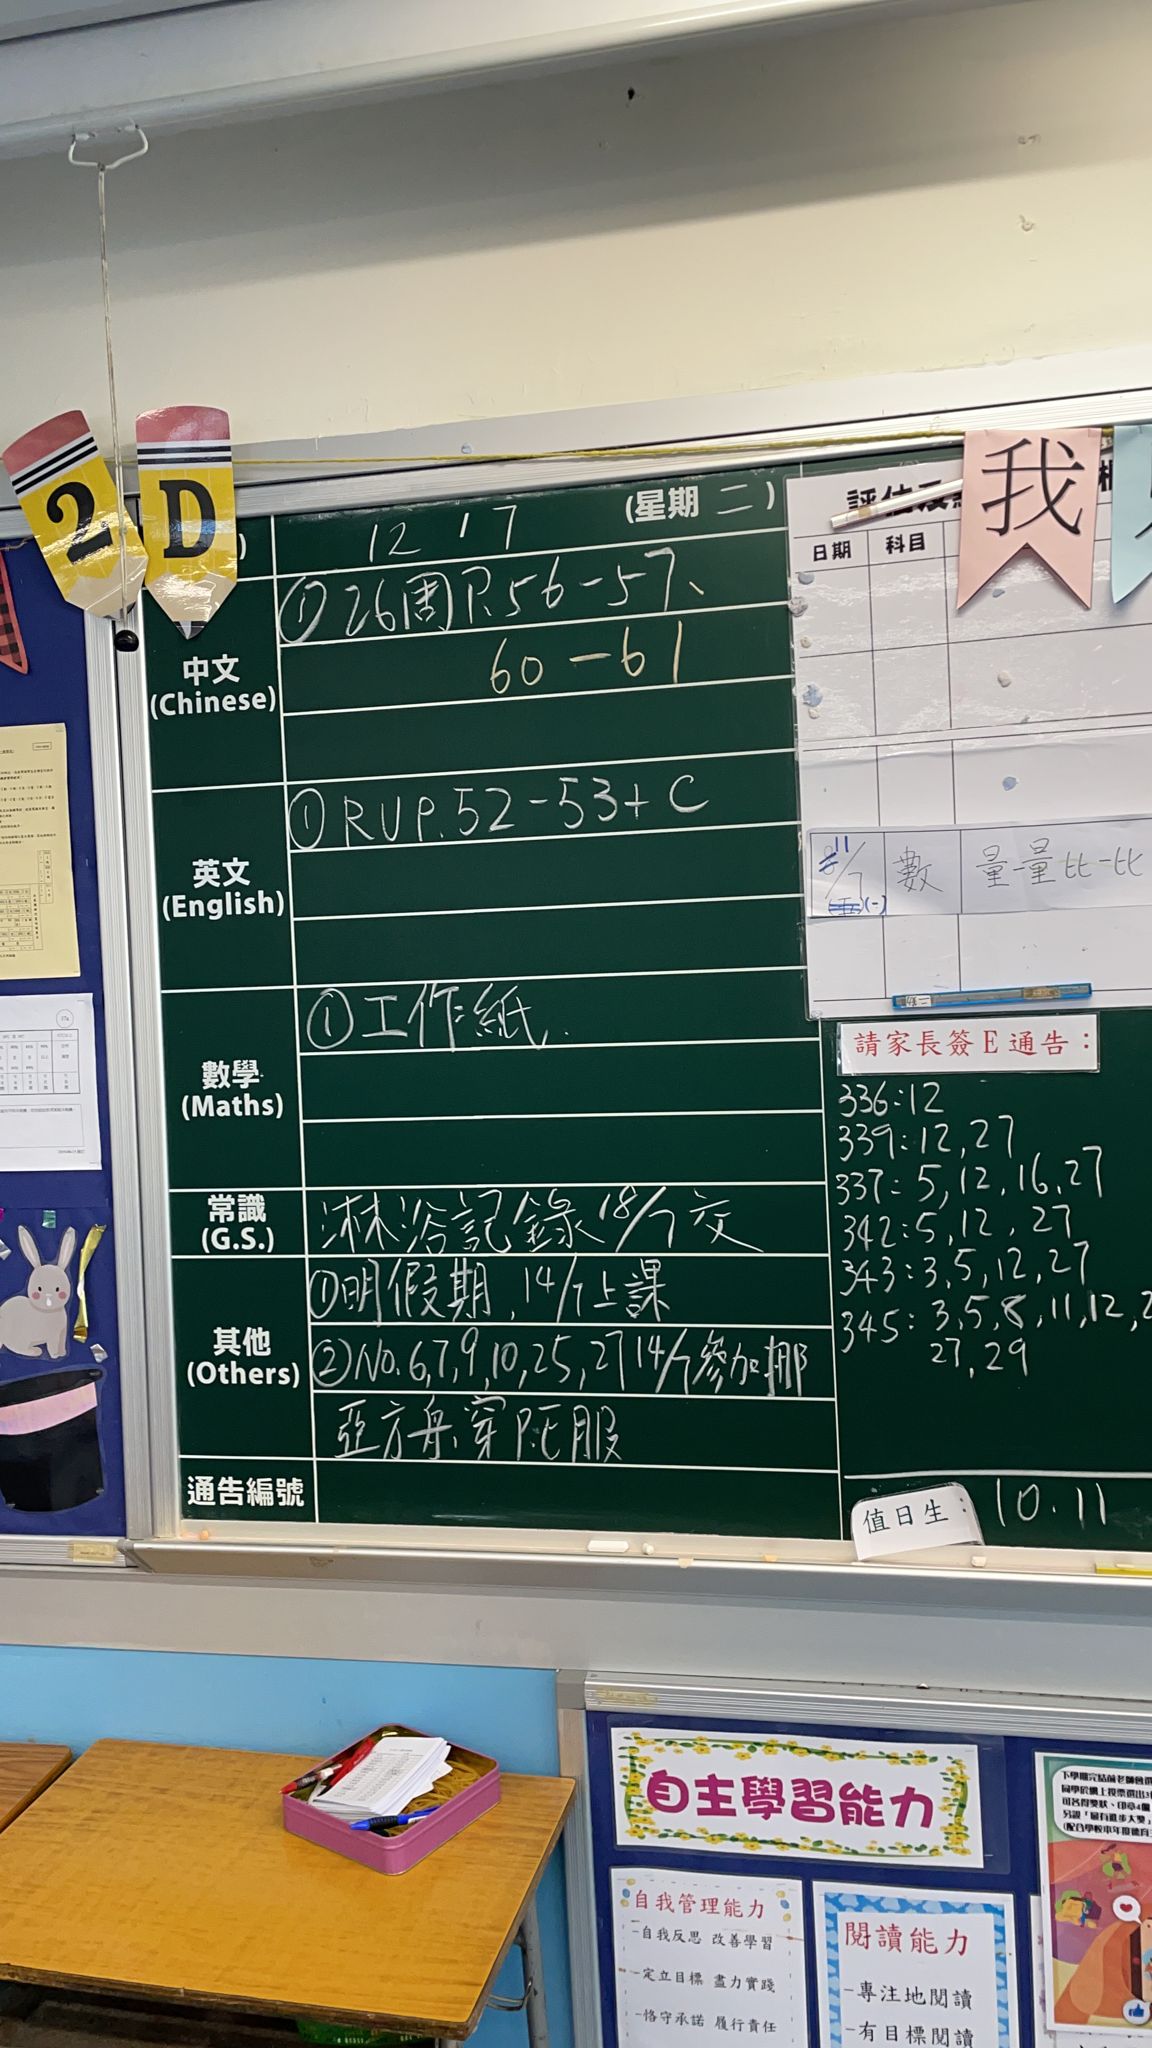 2 D
12 17
(星期 二 )
中文
(Chinese)
① 26周 P.56-57、
60-61
英文
(English)
① RU P.52-53+C
數學
(Maths)
① 工作紙.
常識
(G.S.)
沐浴記錄 18/7交
其他
(Others)
① 明假期, 14/7上課
② No. 6,7,9,10,25,27 14/7參加挪
亞方舟,穿P.E服
通告編號
我
日期 科目
11/7 數 量一量 比一比
(一)
請家長簽E通告：
336:12
339:12,27
337:5,12,16,27
342:5,12,27
343:3,5,12,27
345:3,5,8,11,12,2
27,29
值日生： 10.11
自主學習能力
自我管理能力
-自我反思 改善學習
-定立目標 盡力實踐
-恪守承諾 履行責任
閱讀能力
-專注地閱讀
-有目標閱讀